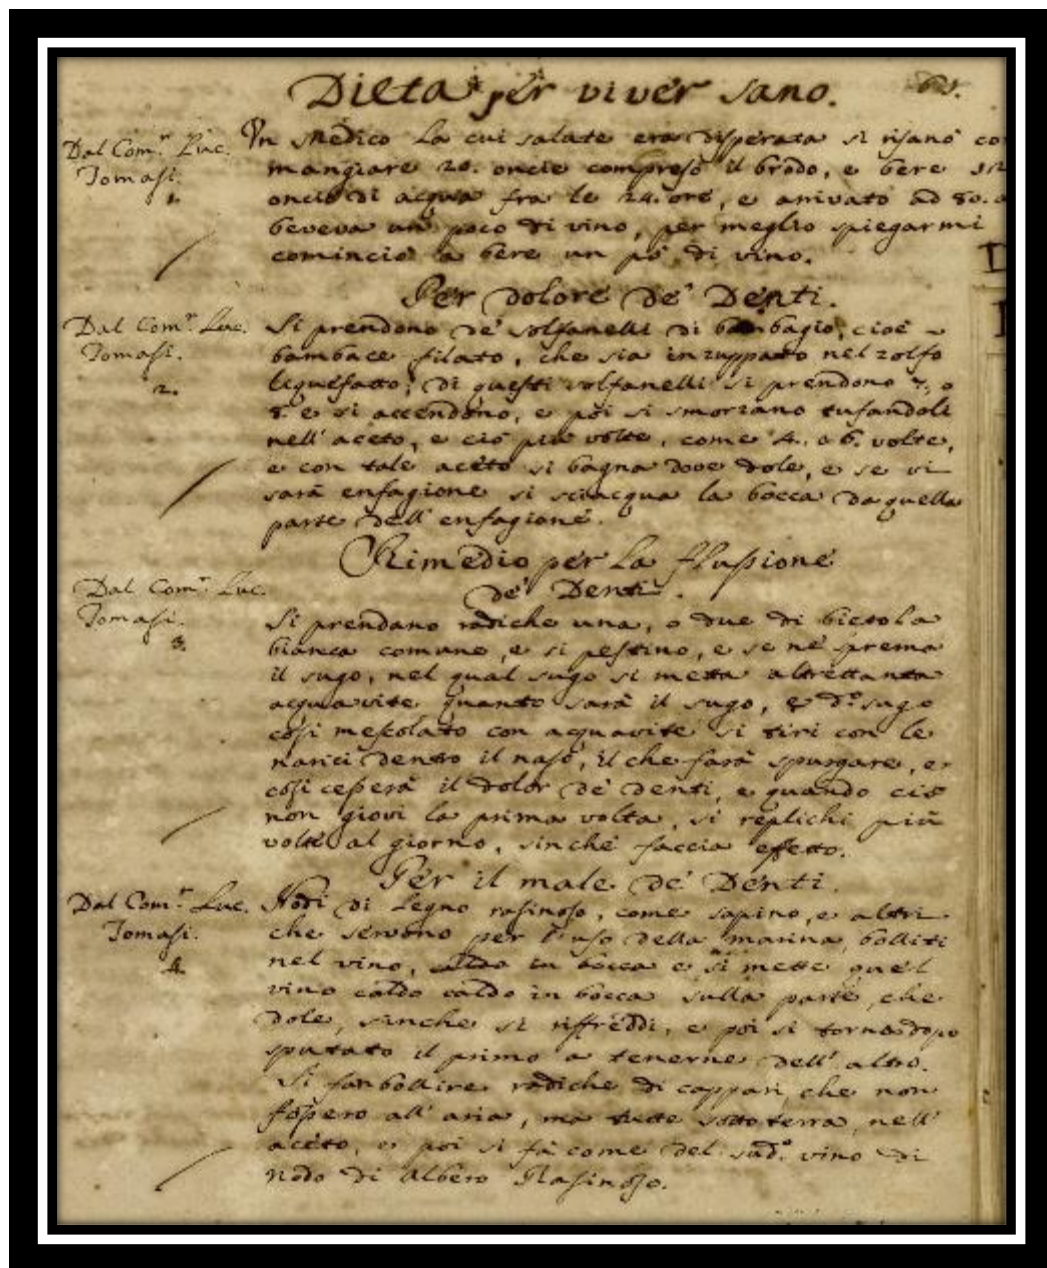 Dieta per viver sano.
65.
Dal Com.r Luc.
Tomasi.
1.
Un Medico la cui salute era disperata si risanò co
mangiare 20. oncie compreso il brodo, e bere 12
oncie di acqua fra le 24. ore, e arrivato ad 80.
beveva un poco di vino, per meglio spiegarmi
cominciò a bere un pò di vino.
Per dolore de' Denti.
Dal Com.r Luc.
Tomasi.
2.
Si prendono de' solfanelli di bambagio, cioè
bambace filato, che sia inzuppato nel zolfo
liquefatto; di questi solfanelli si prendono 7, o
8. e si accendono, e poi si smorzano tufandoli
nell' aceto, e ciò più volte, come 4. o 6. volte,
e con tale aceto si bagna dove dole, e se vi
sarà enfagione si sciacqua la bocca da quella
parte dell' enfagione.
Rimedio per la flussione
de' Denti.
Dal Com.r Luc.
Tomasi.
3.
Si prendano radiche una, o due di bietola
bianca comune, e si pestino, e se ne sprema
il sugo, nel qual sugo si metta altrettanta
acquavite quanto sarà il sugo, e d.o sugo
così mescolato con acquavite si tiri con le
narici dentro il naso, il che farà spurgare, e
così cesserà il dolor de' denti, e quando ciò
non giovi la prima volta, si replichi più
volte al giorno, sinchè faccia effetto.
Per il male de' Denti.
Dal Com.r Luc.
Tomasi.
4.
Nodi di legno rasinoso, come sapino, e altri
che servono per l'uso della marina, bolliti
nel vino, in bocca e si mette quel
vino caldo caldo in bocca sulla parte, che
dole, sinche si riffreddi, e poi si torna dopo
sputato il primo a tenerne dell' altro.
Si fan bollire radiche di cappari, che non
fossero all' aria, ma tutte sotto terra, nell'
aceto, e poi si fà come del sud.o vino di
nodo di Albero Rasinoso.